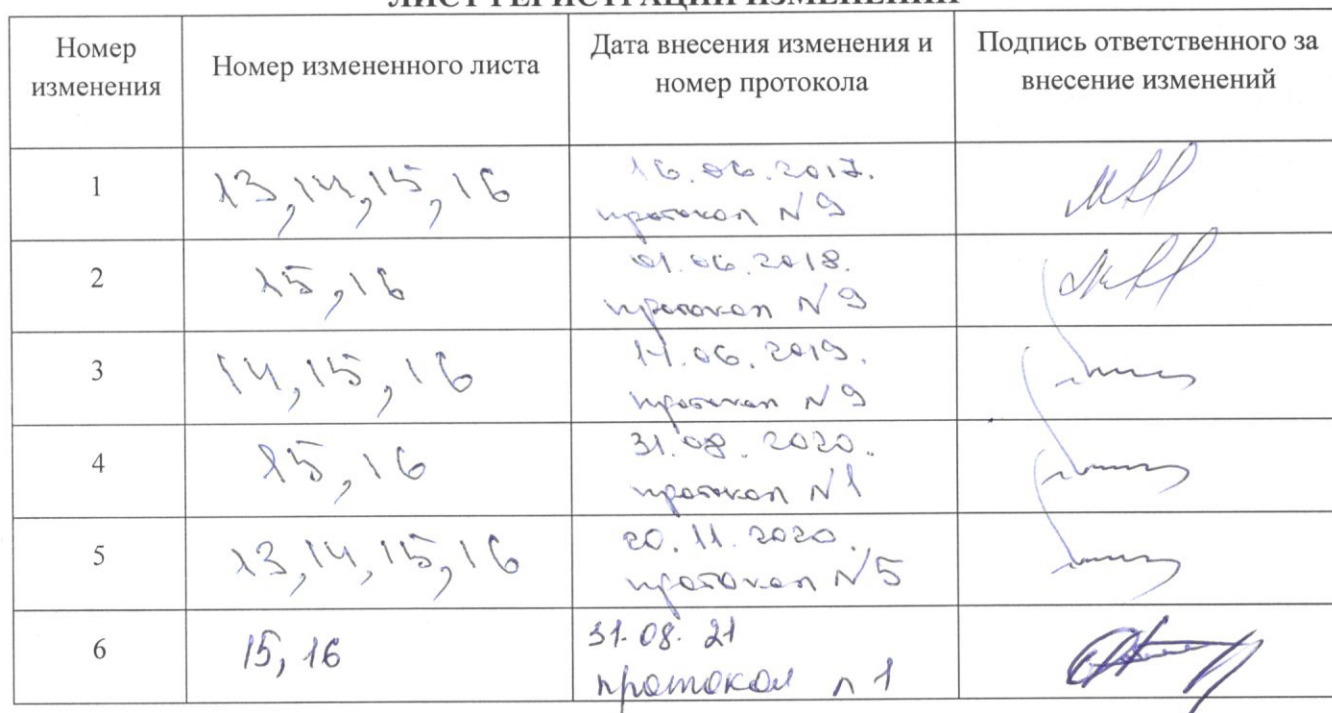 ЛИСТ РЕГИСТРАЦИИ ИЗМЕНЕНИЙ
Номер изменения
Номер измененного листа
Дата внесения изменения и номер протокола
Подпись ответственного за внесение изменений
1
13,14,15,16
16.06.2017.
протокол №9
2
15,16
01.06.2018.
протокол №9
3
14,15,16
14.06.2019.
протокол №9
4
15,16
31.08.2020.
протокол №1
5
13,14,15,16
20.11.2020.
протокол №5
6
15,16
31.08.21
протокол n 1